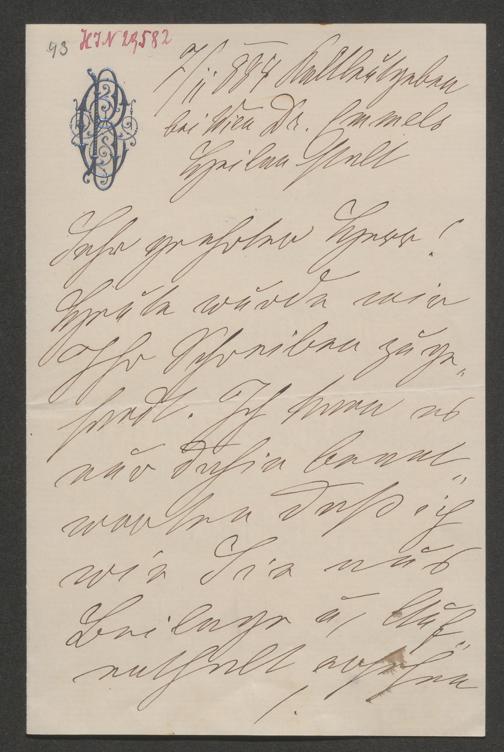 93 HIN 29582
7/II 884 Kaltleutgeben
bei Wien Dr. Emmels
Heilanstalt
Sehr geehrter Herr!
Heute wurde mir
Ihr Schreiben zuge-
sandt. Ich kann es
nur dahin beant-
worten daß ich
wie Sie aus
Beilage u, Auf-
enthalt ersehen
/.